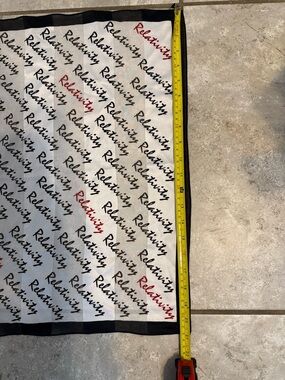 Relativity Relativity Relativity Relativity
Relativity Relativity Relativity Relativity
Relativity Relativity Relativity Relativity
Relativity Relativity Relativity Relativity
Relativity Relativity Relativity Relativity
Relativity Relativity Relativity Relativity
Relativity Relativity Relativity Relativity
Relativity Relativity Relativity Relativity
Relativity Relativity Relativity Relativity
Relativity Relativity Relativity Relativity